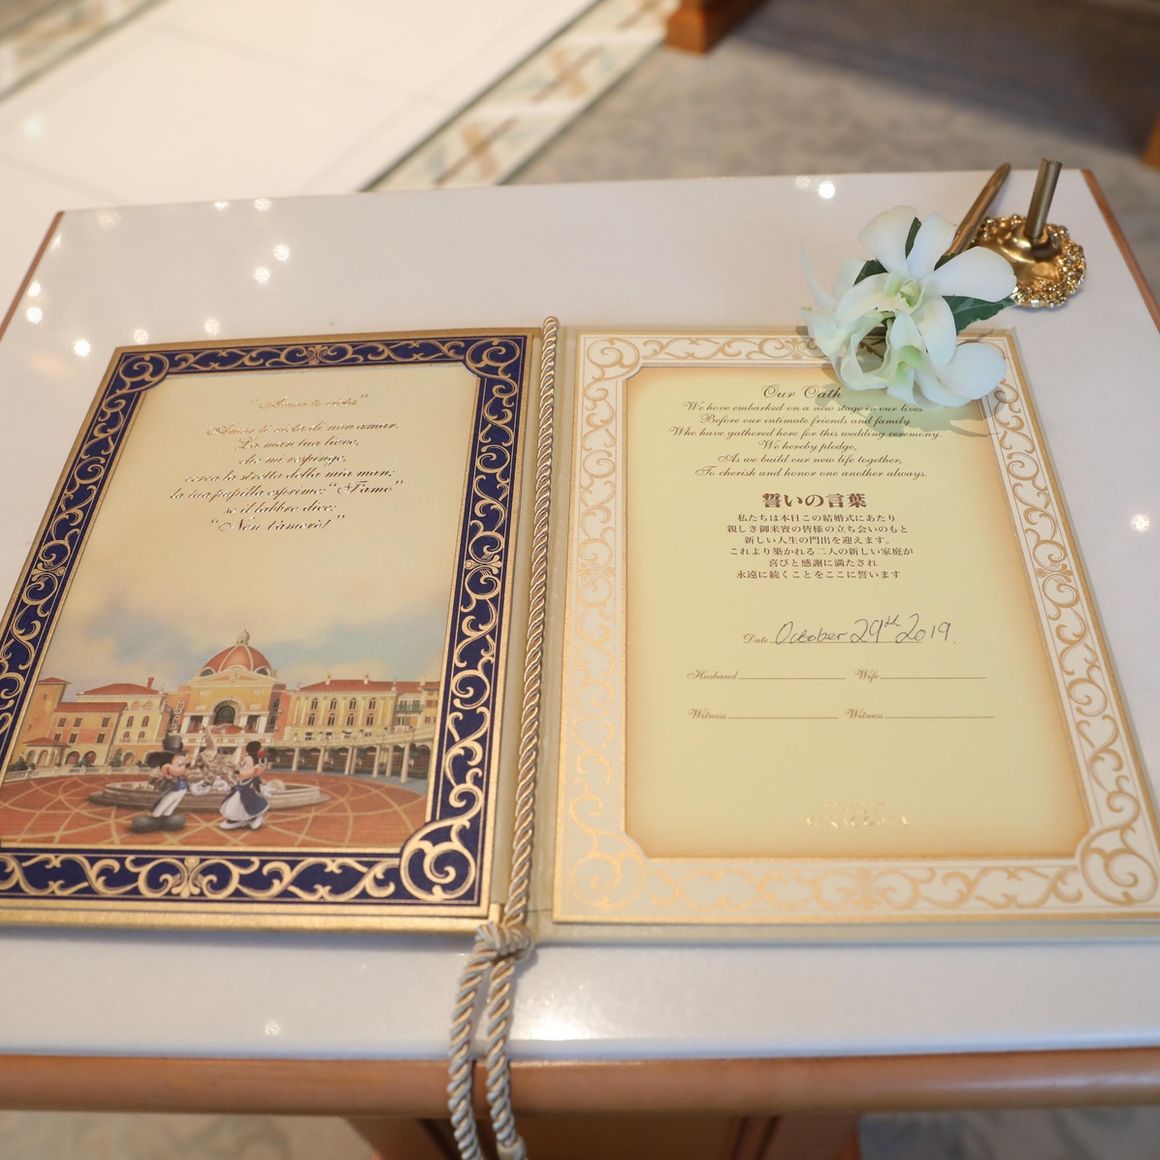 "Amor ti vieta"
Amor ti vieta di non amar.
La man tua lieve,
che mi respinge,
cerca la stretta della mia man;
la tua pupilla esprime: "T'amo"
se il labbro dice:
"Non t'amerò!"
Our Oath
We have embarked on a new stage in our lives
Before our intimate friends and family
Who have gathered here for this wedding ceremony.
We hereby pledge,
As we build our new life together,
To cherish and honor one another always.
誓いの言葉
私たちは本日この結婚式にあたり
親しき御来賓の皆様の立ち会いのもと
新しい人生の門出を迎えます。
これより築かれる二人の新しい家庭が
喜びと感謝に満たされ
永遠に続くことをここに誓います
Date October 29th 2019.
Husband Wife
Witness Witness